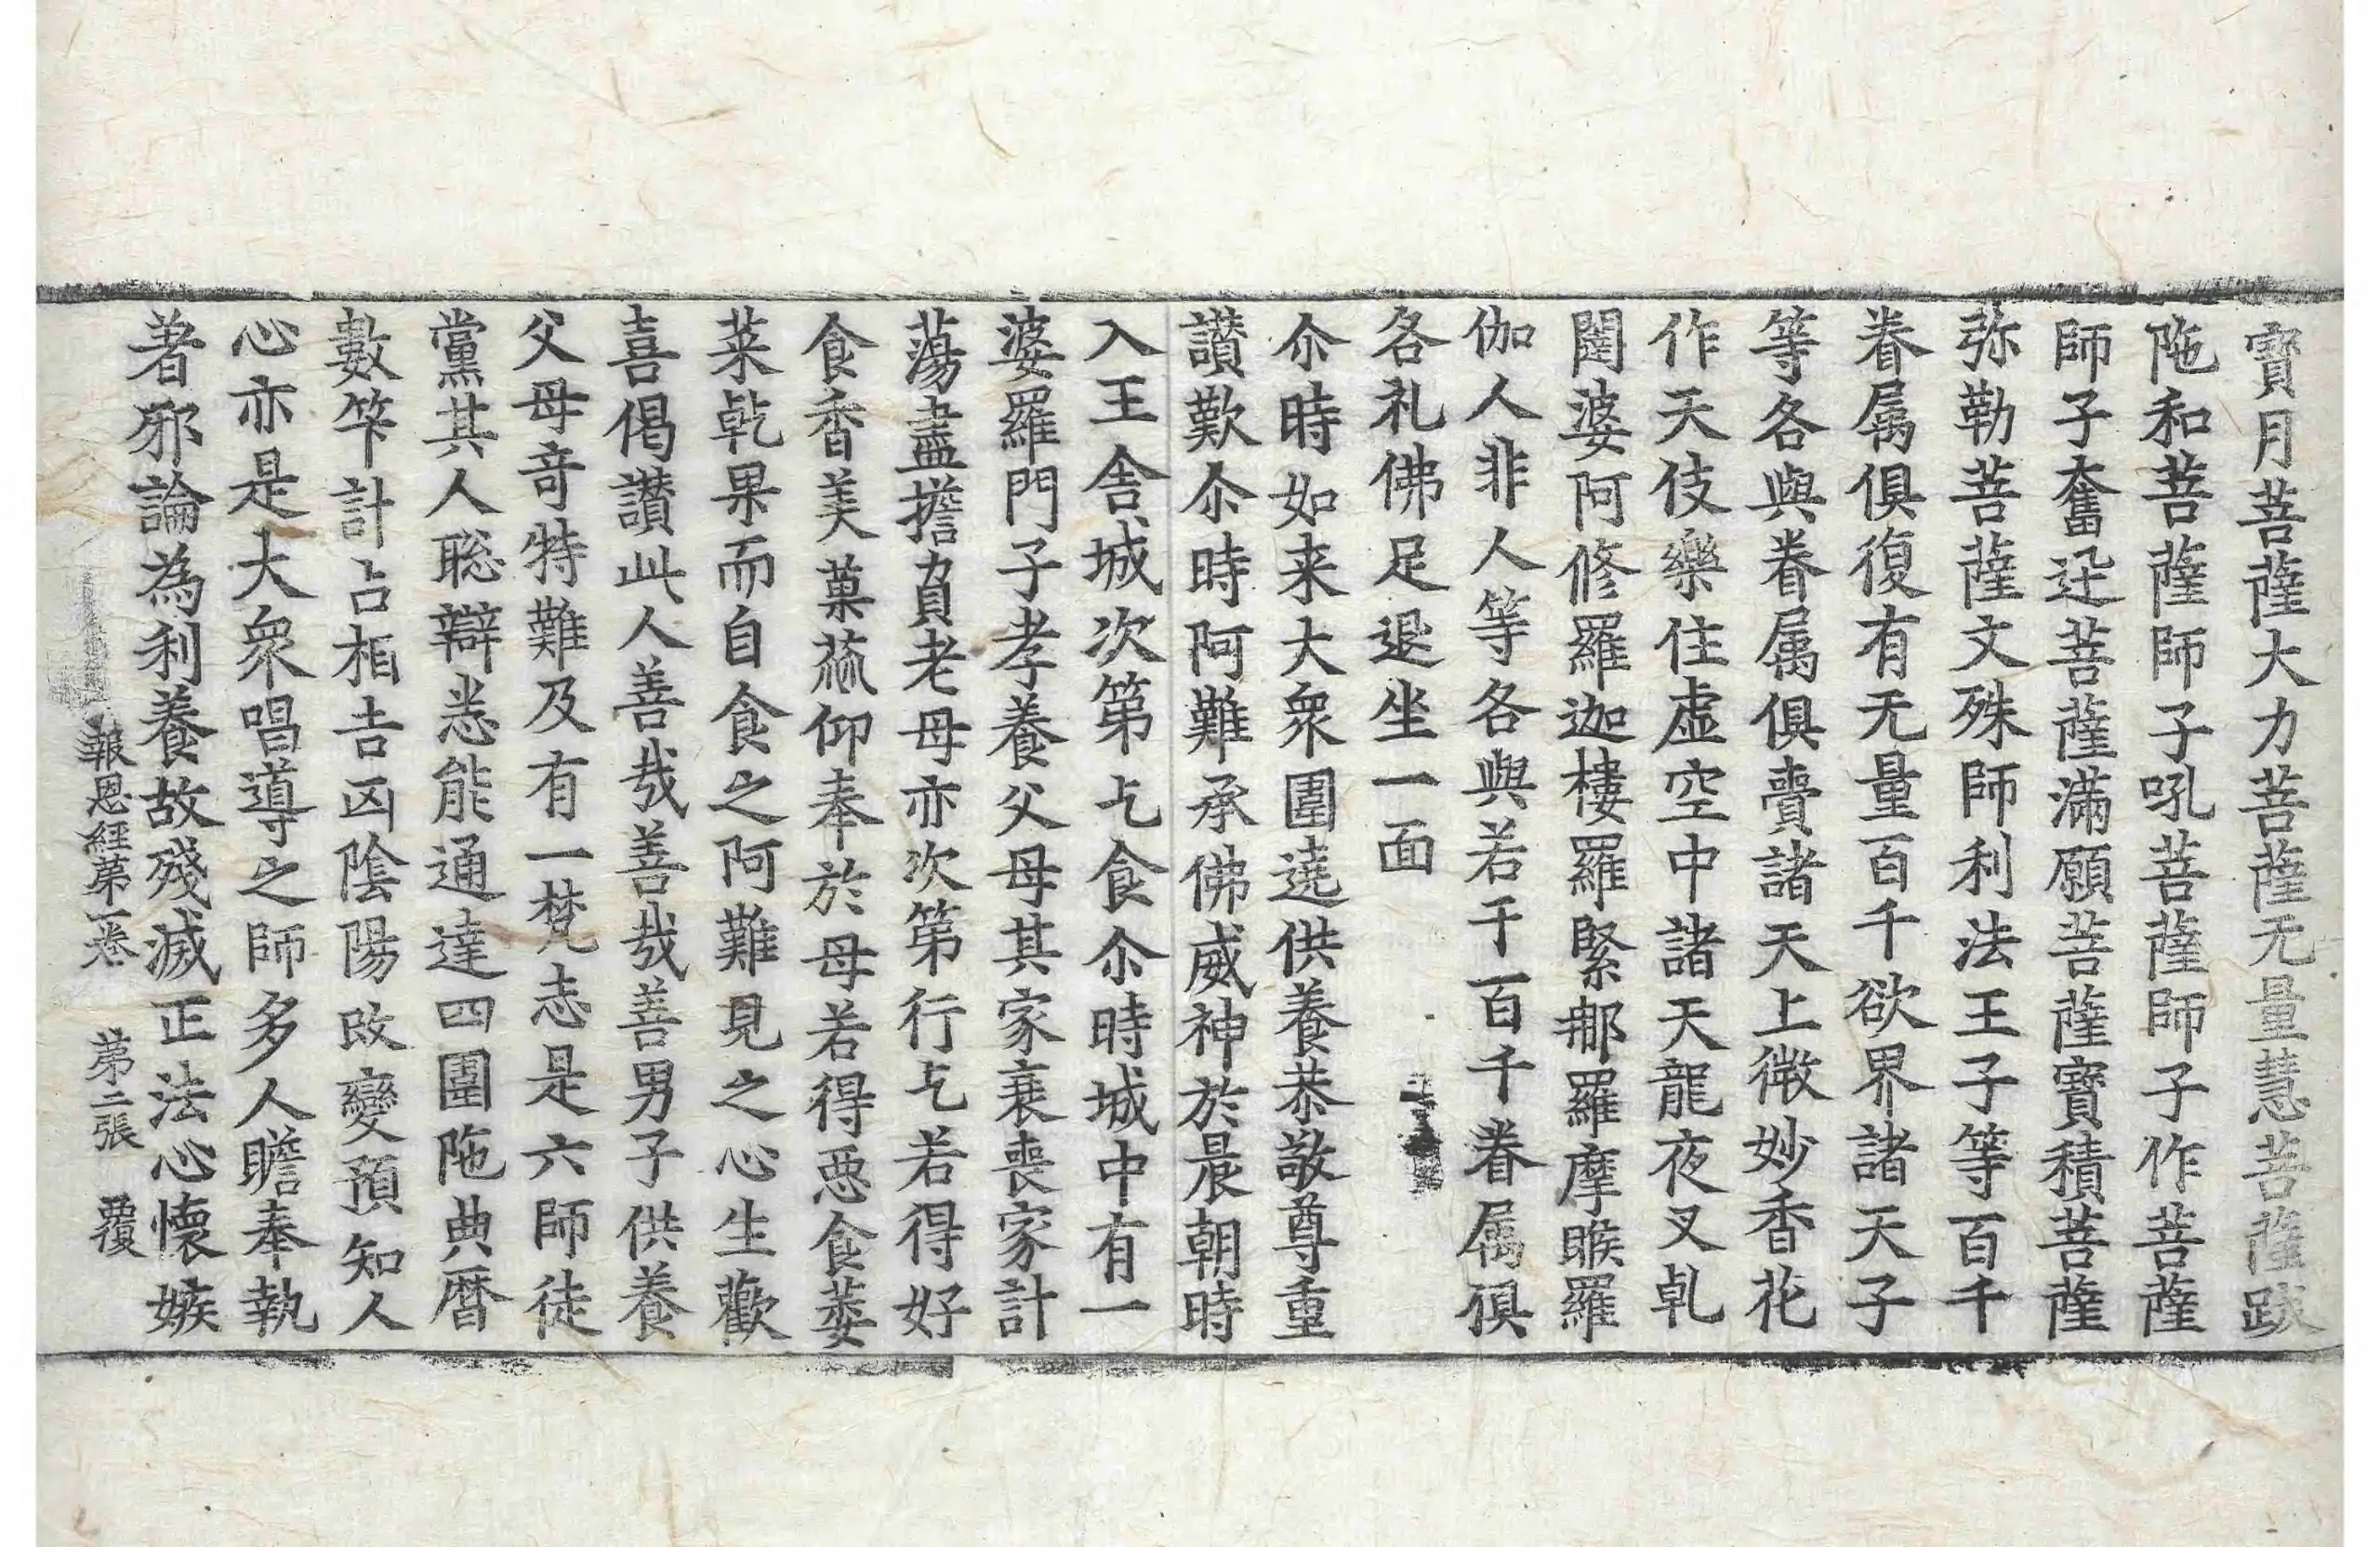 寶月菩薩大力菩薩无量慧菩薩跋
陁和菩薩師子吼菩薩師子作菩薩
師子奮迅菩薩滿願菩薩寶積菩薩
弥勒菩薩文殊師利法王子等百千
眷属俱復有无量百千欲界諸天子
等各與眷属俱賷諸天上微妙香花
作天伎樂住虛空中諸天龍夜叉乹
闥婆阿修羅迦樓羅緊那羅摩睺羅
伽人非人等各與若干百千眷属俱
各礼佛足退坐一面
尒時如来大衆圍遶供養恭敬尊重
讃歎尒時阿難承佛威神於晨朝時
入王舍城次第乞食尒時城中有一
婆羅門子孝養父母其家衰喪家計
蕩盡擔負老母亦次第行乞若得好
食香美菓蓏仰奉於母若得惡食萎
菜乹果而自食之阿難見之心生歡
喜偈讃此人善哉善哉善男子供養
父母竒特難及有一梵志是六師徒
黨其人聡辯悉能通達四圍陁典曆
數竿計占相吉凶陰陽改變預知人
心亦是大衆唱導之師多人瞻奉執
著邪論為利養故殘滅正法心懷嫉
報恩經第一卷 第二張 覆